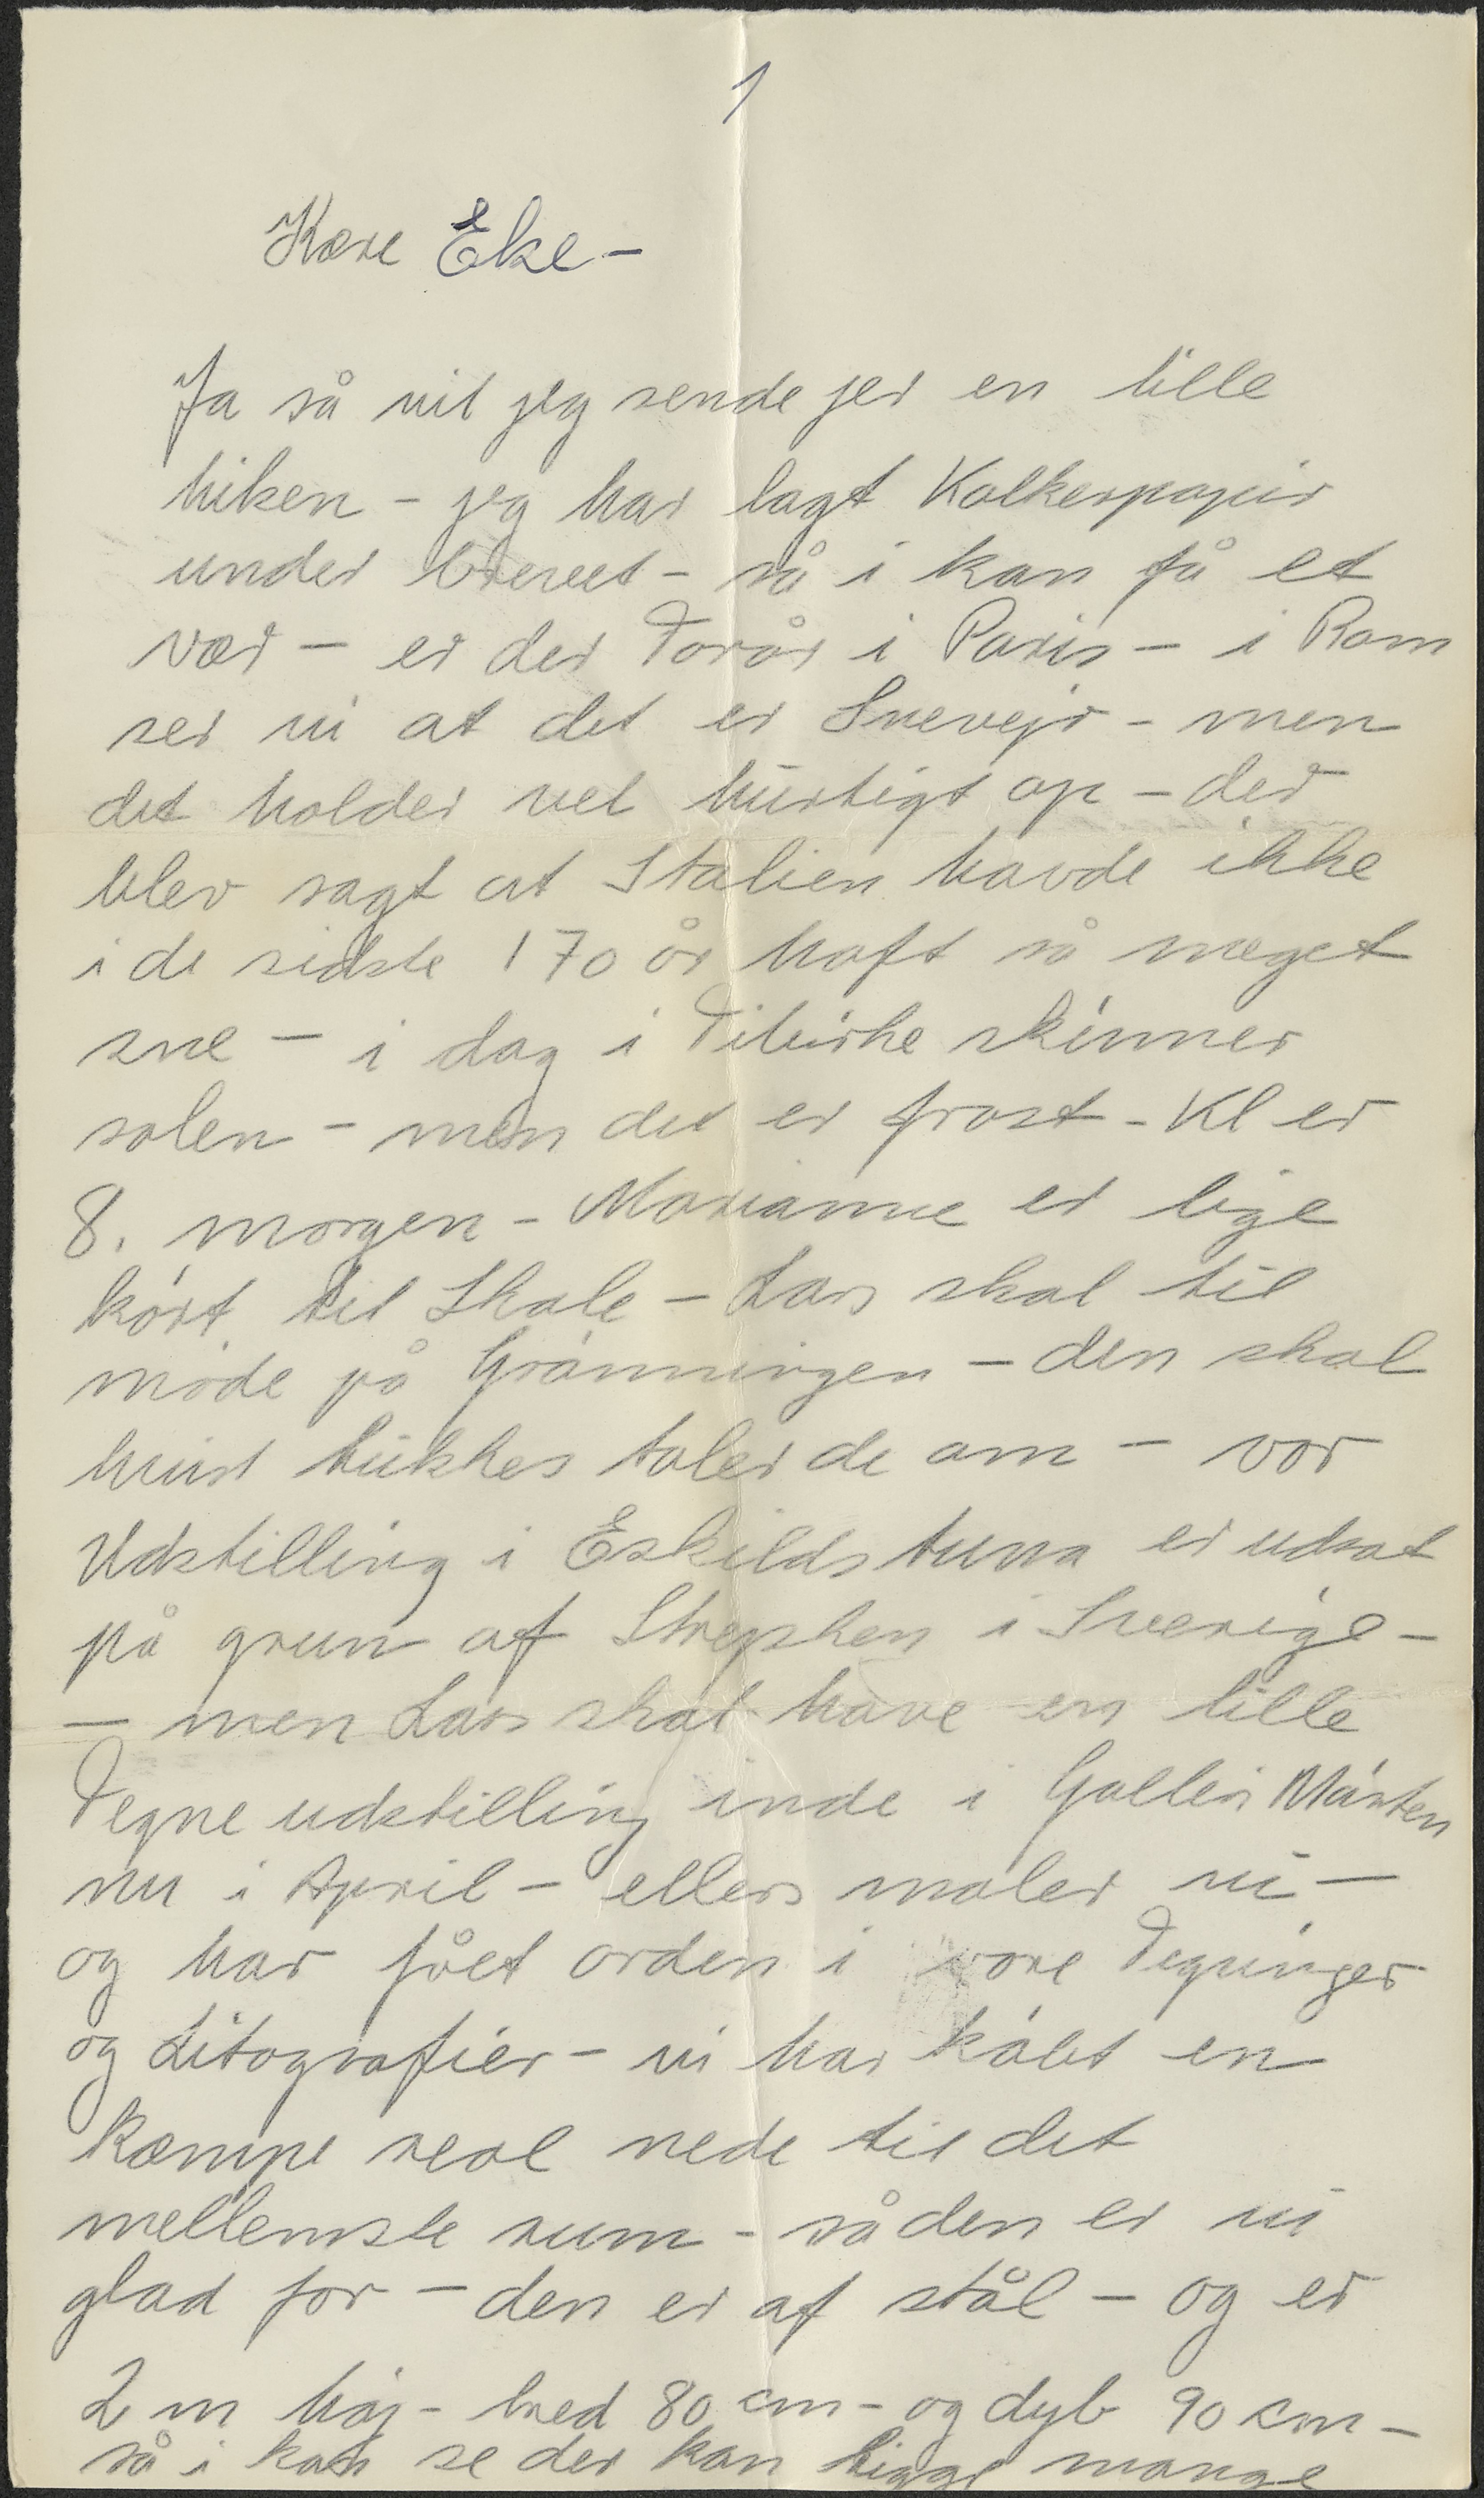 1
Kære Eke -
Ja så vil jeg sende jer en lille
hilsen - jeg har lagt Kalkerpapir
under brevet - så i kan få et
vær - er der Forår i Paris - i Rom
ser vi at det er Snevejr - men
det holder vel hurtigt op - der
blev sagt at Italien havde ikke
i de sidste 170 år haft så meget
sne - i dag i Tibirke skinner
solen - men det er frost - Kl er
8. morgen - Marianne er lige
kørt til Skole - Lars skal til
møde på Grønningen - den skal
lukkes taler de om - vor
Udstilling i Eskildstuna er udsat
på grun af Strejken i Sverige -
- men Lars skal have en lille
Tegne udstilling inde i Galleri Mårten
nu i April - ellers maler vi -
og har fået orden i vore Tegninger
og Litografier - vi har købt en
Kæmpe reol nede til det
mellemste rum - så den er vi
glad for - den er af stål - og er
2 m høj - bred 80 cm - og dyb 90 cm -
så i kan se der kan ligge mange